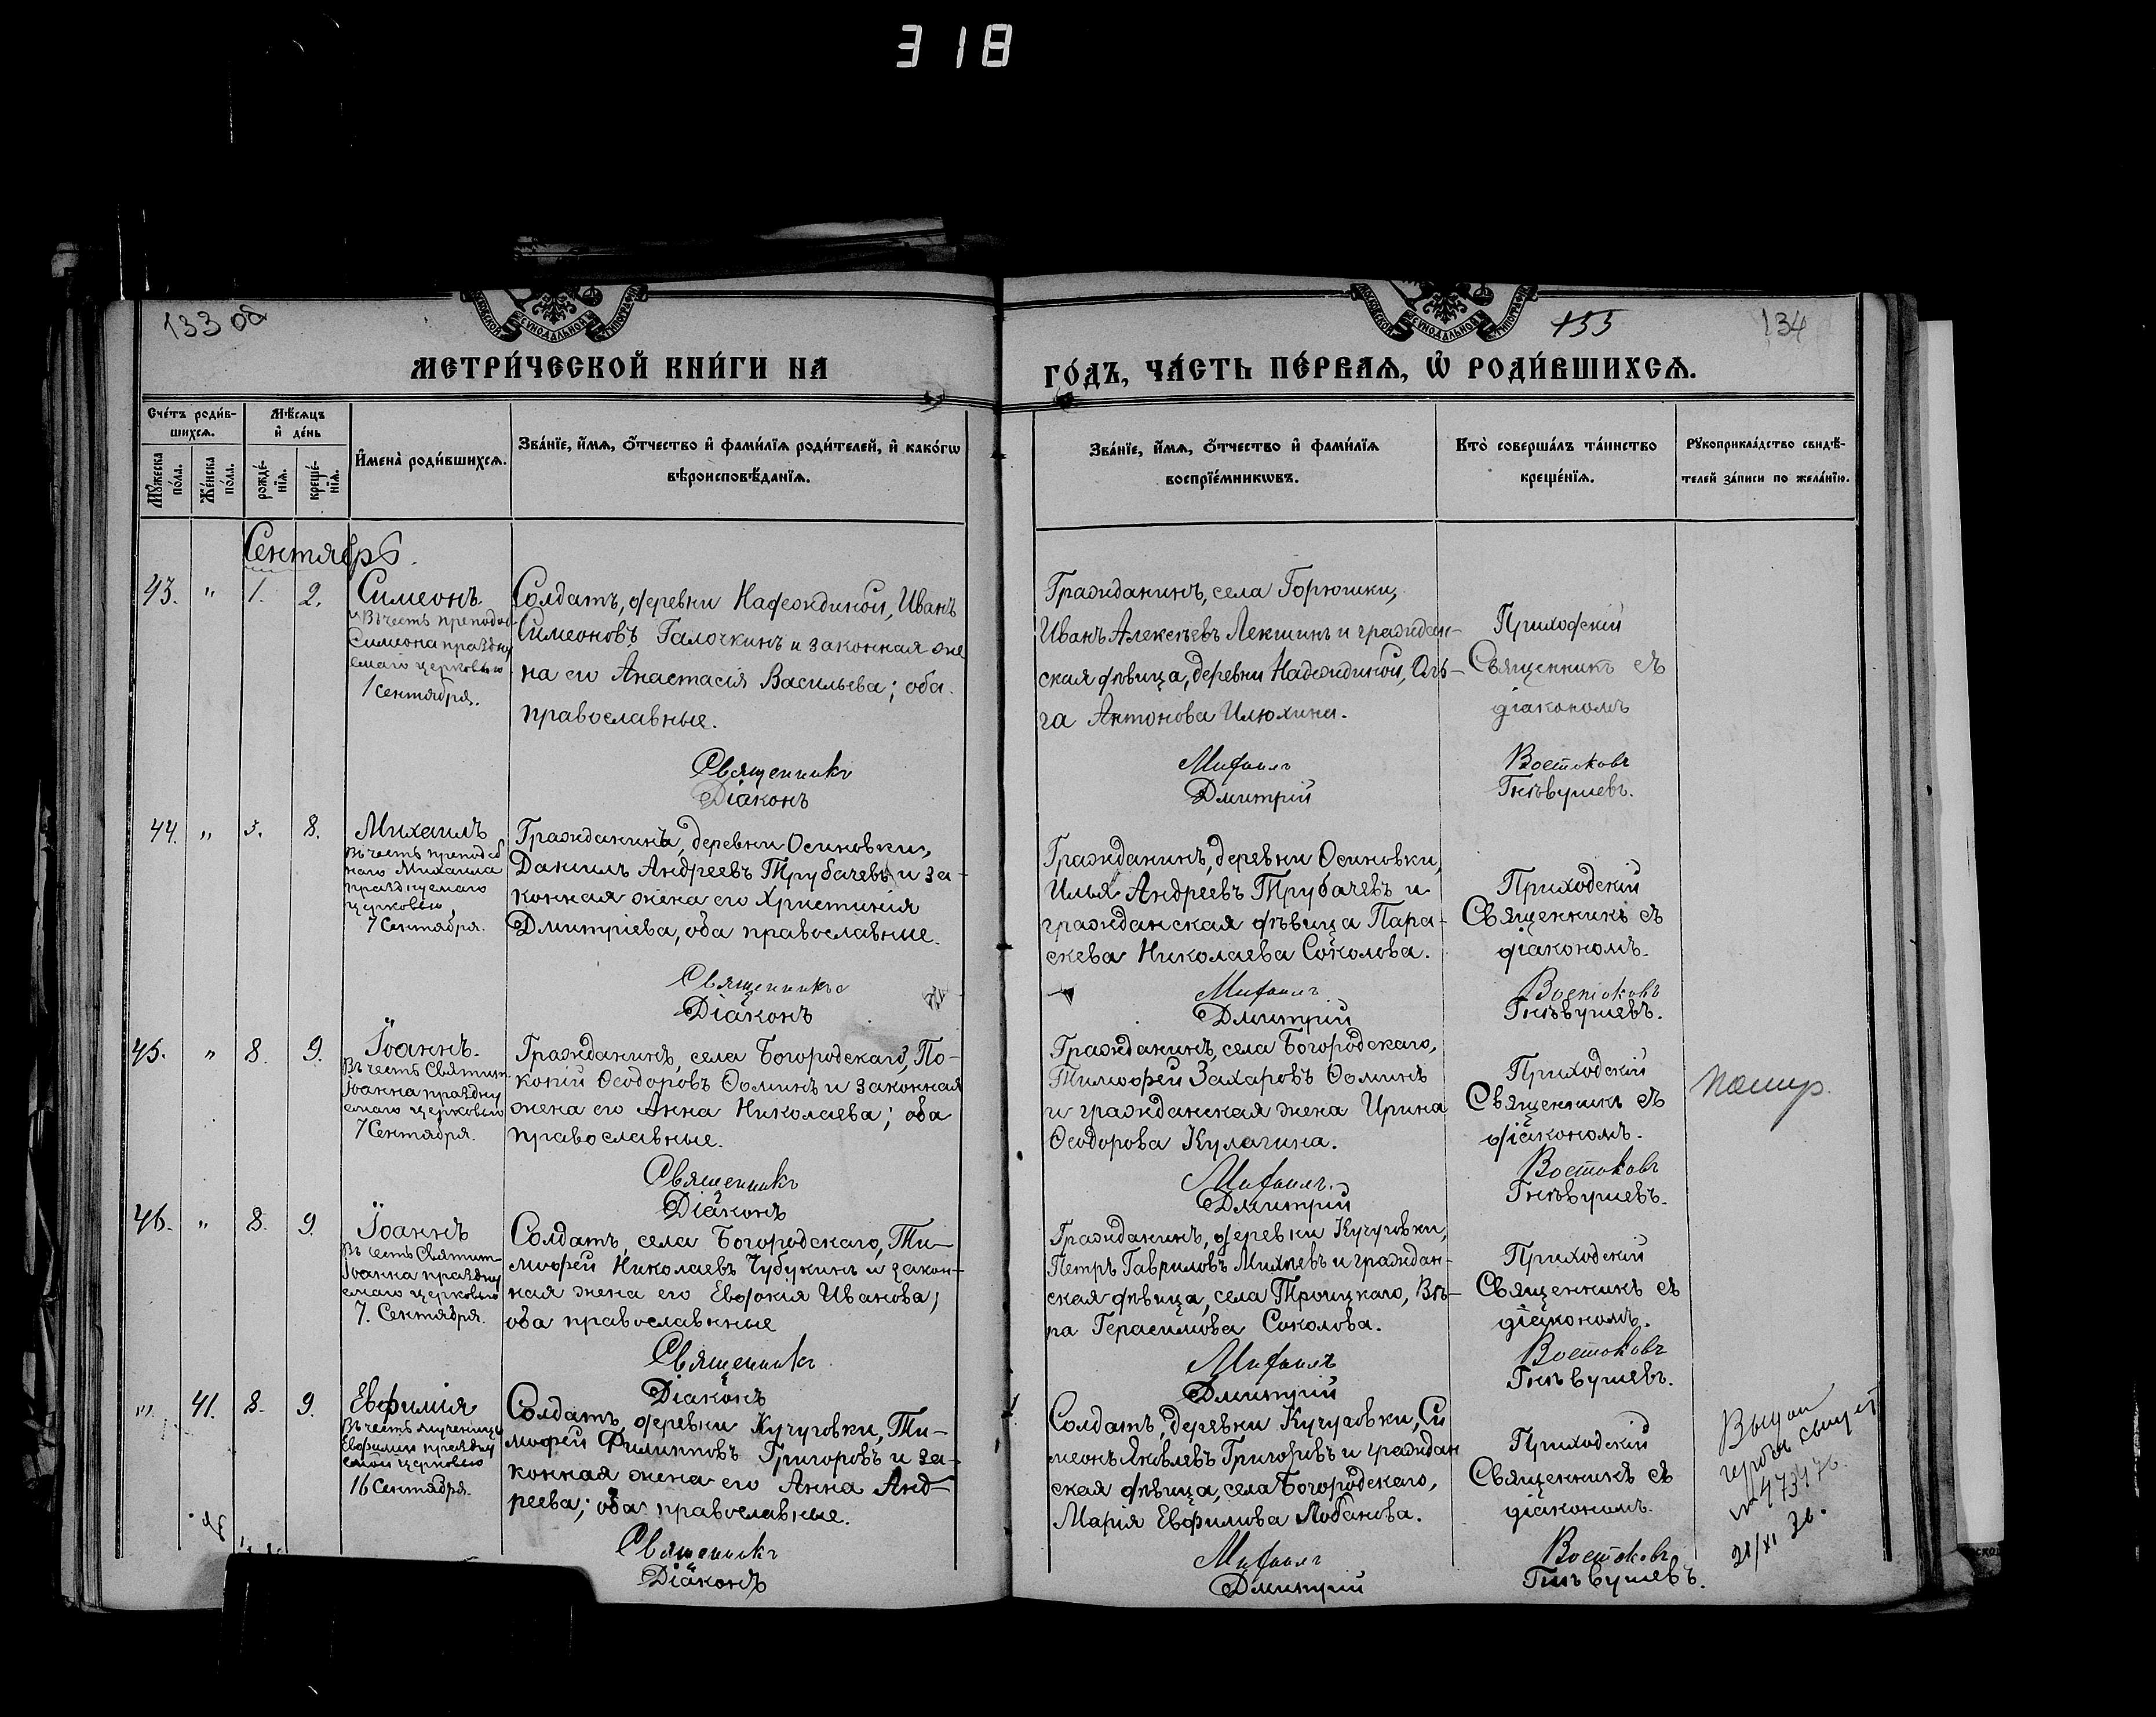 318
133 об
155
134
МЕТРИ́ЧЕСКОЙ КНИ́ГИ НА
ГО́ДЪ, ЧА́СТЬ ПЕ́РВАѦ, Ѡ҆ РОДИ́ВШИХСѦ.
Сче́тъ роди́в-
шихсѧ.
Мꙋ́жеска по́ла.
Же́нска по́ла.
Мѣ́сѧцъ
и҆ де́нь
рожде́-
нїѧ.
креще́-
нїѧ.
И҆мена̀ роди́вшихсѧ.
Зва́нїе, и҆́мѧ, ѻ҆́тчество и҆ фами́лїѧ роди́телей, и҆ како́гѡ
вѣроисповѣ́данїѧ.
Зва́нїе, и҆́мѧ, ѻ҆́тчество и҆ фами́лїѧ
воспрїе́мникѡвъ.
Кто̀ соверша́лъ та́инство
креще́нїѧ.
Рꙋкоприкла́дство свидѣ́-
телей за́писи по жела́нїю.
Сентябрь.
43. " 1. 2.
Симеонъ.
Въ честь преподоб
Симеона праздну
емаго церковью
1 Сентября.
Солдатъ, деревни Надеждиной, Иванъ
Симеоновъ Галочкинъ и законная же
на его Анастасія Васильева; оба
православные.
Гражданинъ, села Горюшки,
Иванъ Алексѣевъ Лекшинъ и граждан-
ская дѣвица, деревни Надеждиной, Оль-
га Антонова Илюхина.
Приходскій
Священникъ съ
діакономъ
Священникъ Михаилъ Востоковъ
Діаконъ Дмитрій Гнѣвушевъ.
44. " 5. 8.
Михаилъ
Въ честь преподоб
наго Михаила
празднуемаго
церковью
7 Сентября.
Гражданинъ, деревни Осиновки,
Даніилъ Андреевъ Трубачевъ и за-
конная жена его Христинія
Дмитріева, оба православные.
Гражданинъ, деревни Осиновки,
Илья Андреевъ Трубачевъ и
гражданская дѣвица Пара-
скева Николаева Соколова.
Приходскій
Священникъ съ
діакономъ.
Священникъ Михаилъ Востоковъ
Діаконъ Дмитрій Гнѣвушевъ.
45. " 8. 9.
Іоаннъ.
Въ честь Святит.
Іоанна праздну
емаго церковью
7 Сентября.
Гражданинъ, села Богородскаго, По-
копій Ѳеодоровъ Ѳоминъ и законная
жена его Анна Николаева; оба
православные.
Гражданинъ, села Богородскаго,
Тимоѳей Захаровъ Ѳоминъ
и гражданская жена Ирина
Ѳеодорова Кулагина.
Приходскій
Священникъ съ
діакономъ.
Священникъ Михаилъ. Востоковъ
Діаконъ Дмитрій Гнѣвушевъ.
46. " 8. 9.
Іоаннъ
Въ честь Святит
Іоанна праздну
емаго церковью
7. Сентября.
Солдатъ, села Богородскаго, Ти-
моѳей Николаевъ Чубукинъ и закон-
ная жена его Евдокія Иванова;
оба православные
Гражданинъ, деревни Кучуговки,
Петръ Гавриловъ Михѣевъ и граждан-
ская дѣвица, села Троицкаго, Вѣ-
ра Герасимова Соколова.
Приходскій
Священникъ съ
діакономъ.
Священникъ Михаилъ Востоковъ
Діаконъ Дмитрій Гнѣвушевъ.
" 41. 8. 9.
Евфимія
Въ честь мученицы
Евфиміи праздну
емой церковью
16 Сентября.
Солдатъ деревни Кучуговки, Ти-
моѳей Филипповъ Григоровъ и за-
конная жена его Анна Анд-
реева; оба православные.
Солдатъ, деревни Кучуговки, Си
меонъ Яковлевъ Григоровъ и граждан
ская дѣвица, села Богородскаго,
Марія Евфимова Лобанова.
Приходскій
Священникъ съ
діакономъ.
Священникъ Михаилъ Востоковъ
Діаконъ Дмитрій Гнѣвушевъ.